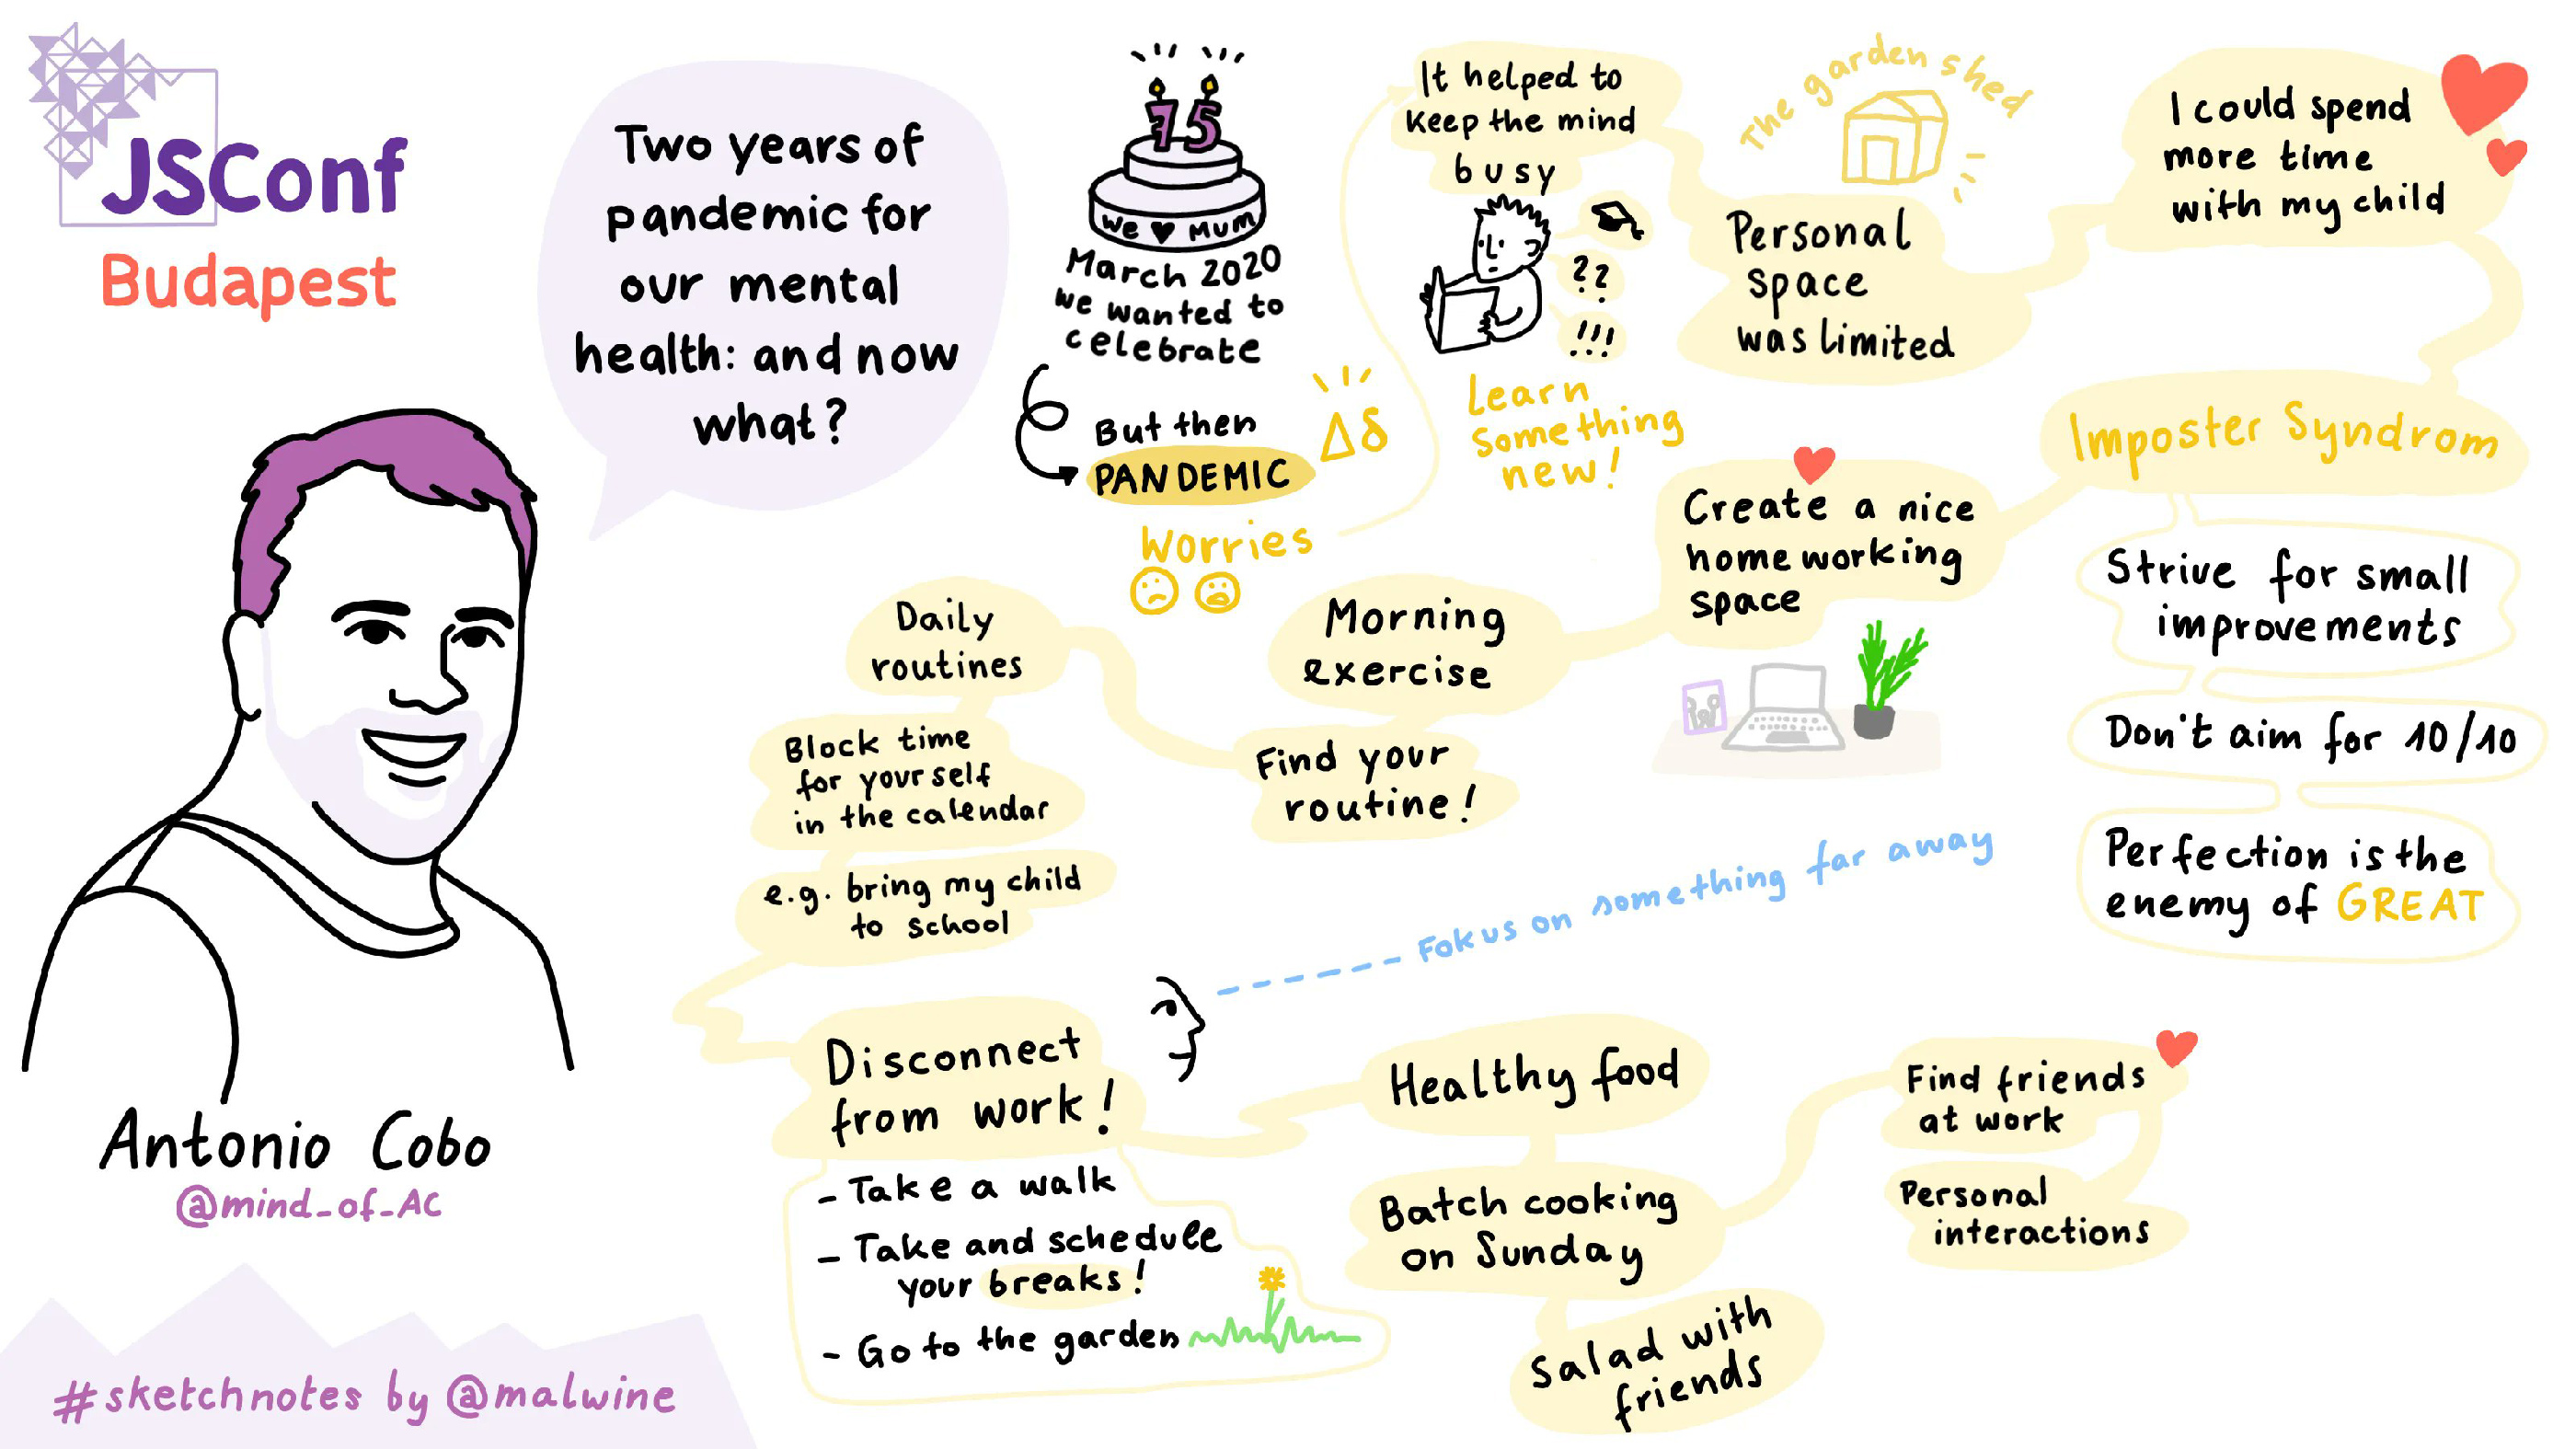 JSConf
Budapest
Two years of
pandemic for
our mental
health: and now
what?
Antonio Cobo
@mind_of_AC
#sketchnotes by @malwine
75
We ♥ Mum
March 2020
we wanted to
celebrate
But then
PANDEMIC
Δδ
Worries
It helped to
keep the mind
busy
??
!!!
Learn
something
new!
The garden shed
Personal
space
was limited
I could spend
more time
with my child
Imposter Syndrom
Strive for small
improvements
Don't aim for 10/10
Perfection is the
enemy of GREAT
Create a nice
home working
space
Morning
exercise
Find your
routine!
Daily
routines
Block time
for yourself
in the calendar
e.g. bring my child
to school
Disconnect
from work!
- Take a walk
- Take and schedule
your breaks!
- Go to the garden
Fokus on something far away
Healthy food
Batch cooking
on Sunday
Salad with
friends
Find friends
at work
Personal
interactions